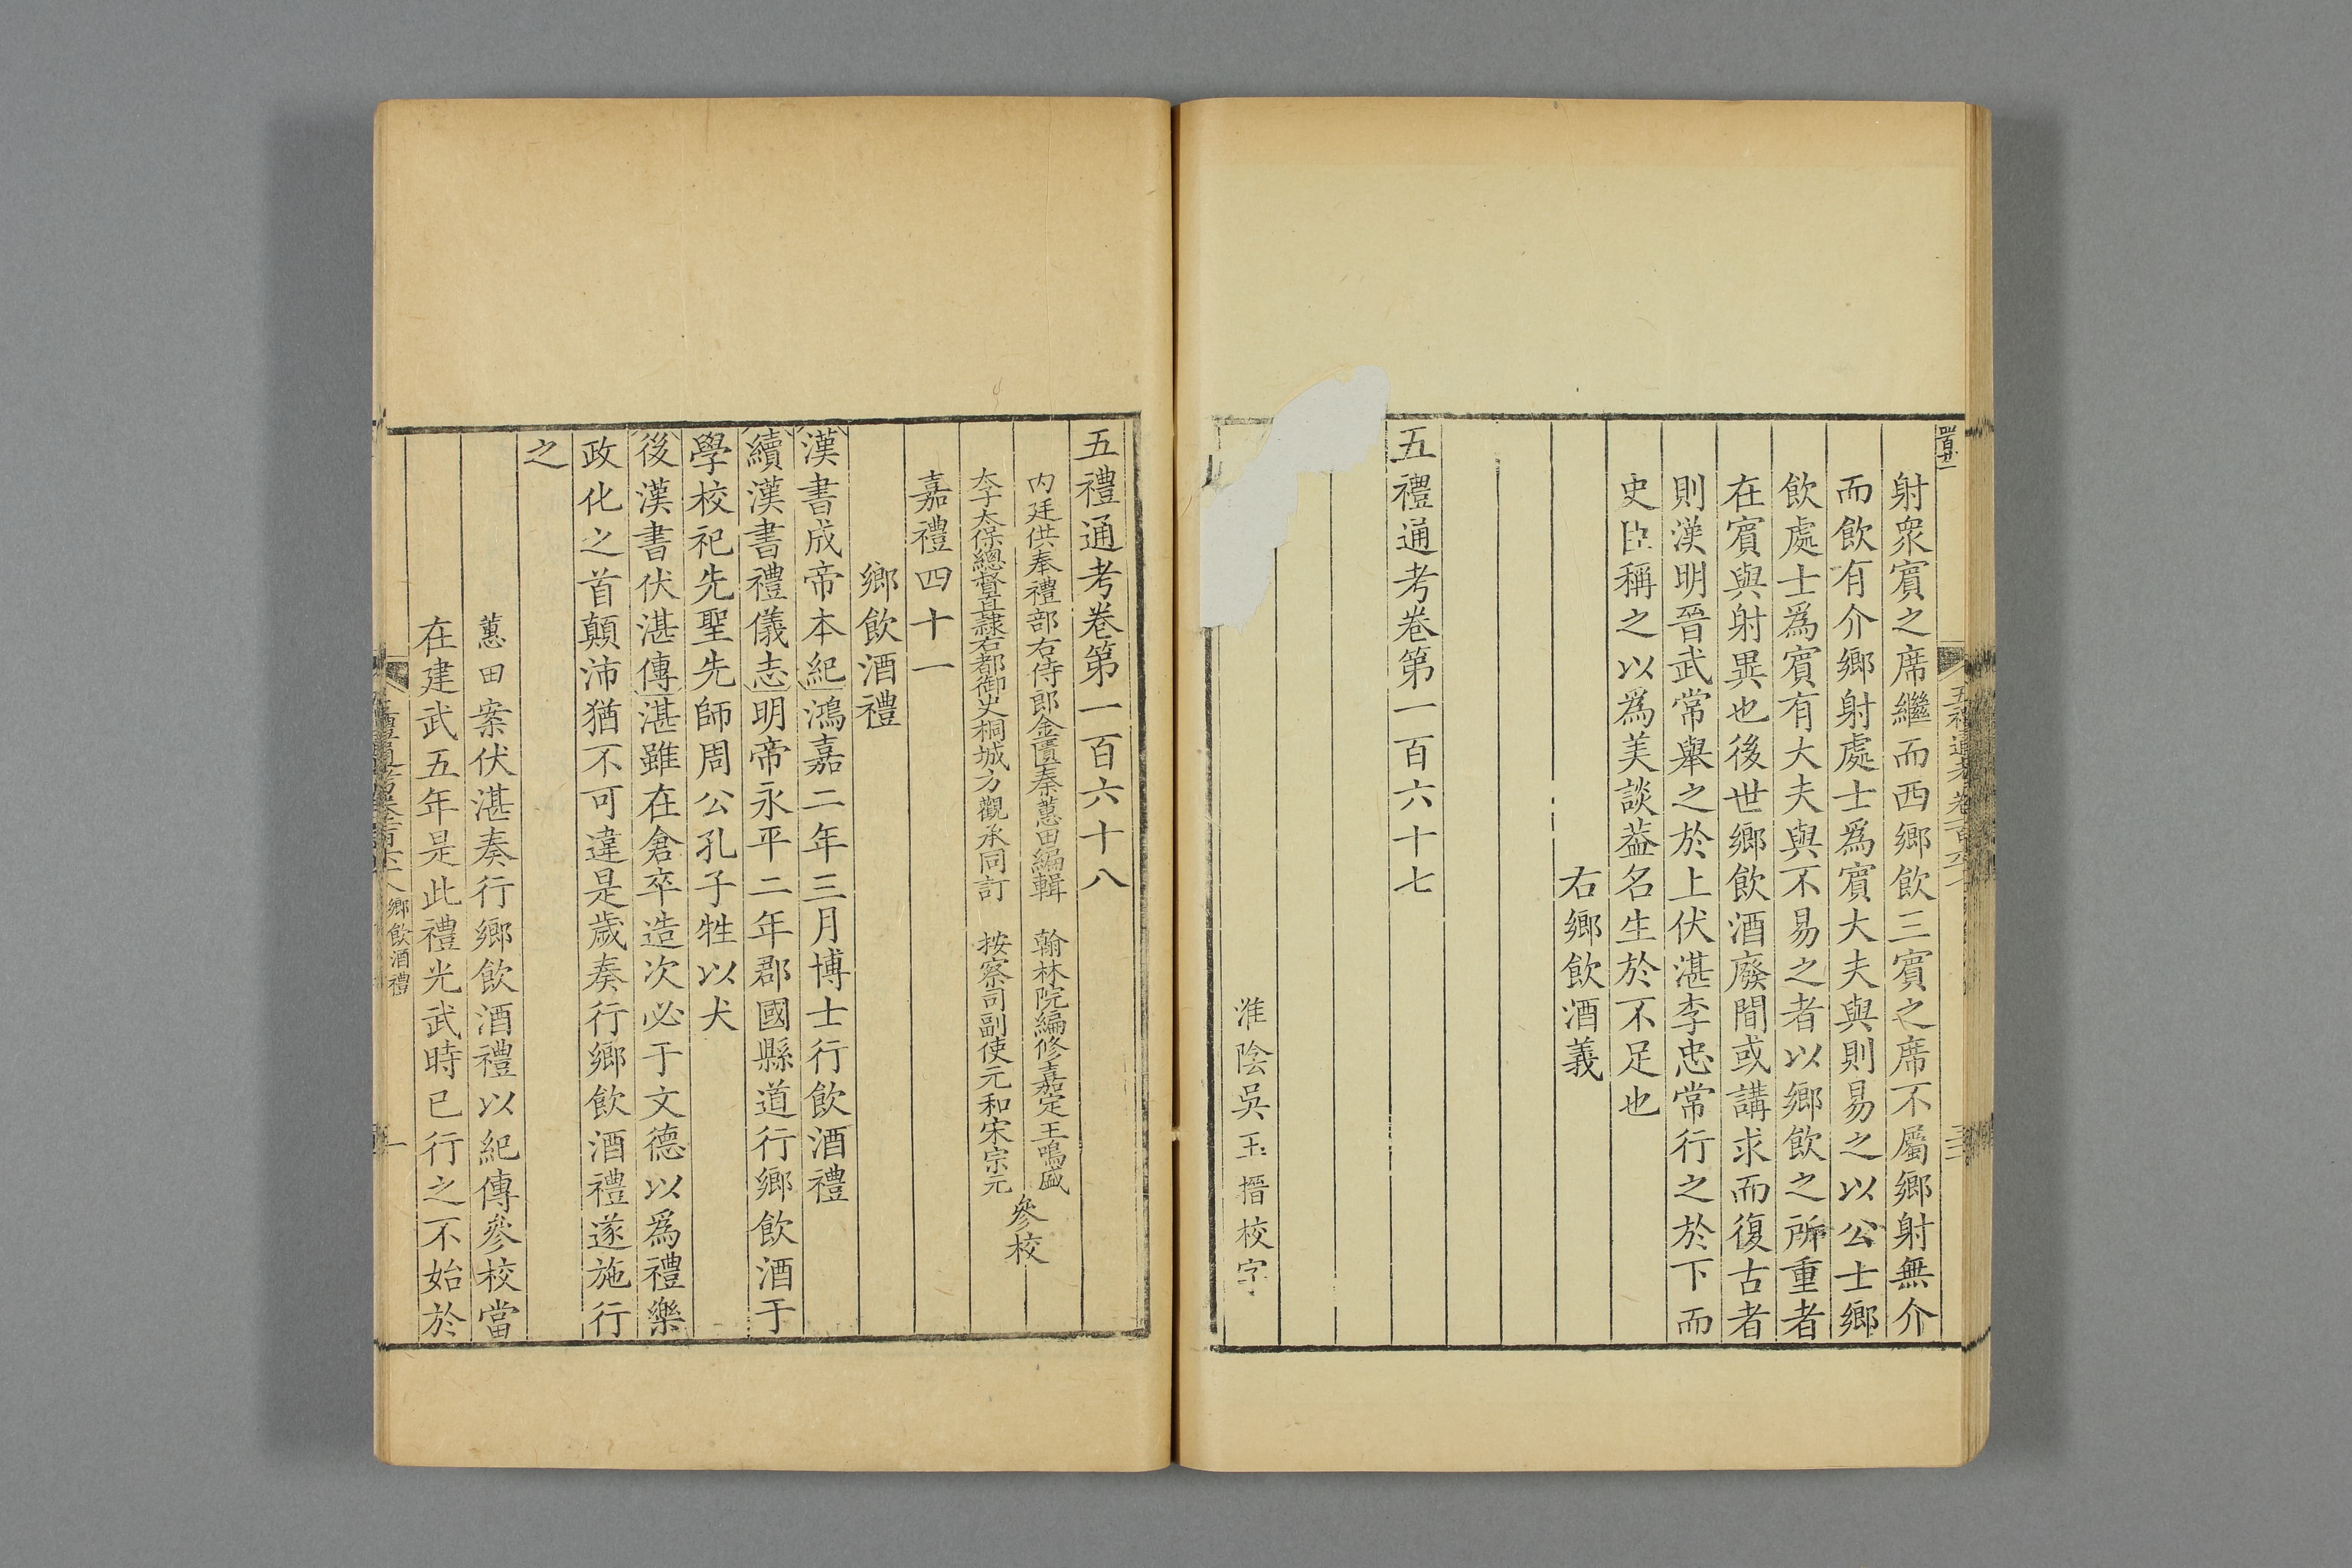 射衆賓之席繼而西鄉飲三賓之席不屬鄉射無介
而飲有介鄉射處士爲賓大夫與則易之以公士鄉
飲處士爲賓有大夫與不易之者以鄉飲之所重者
在賓與射異也後世鄉飲酒廢間或講求而復古者
則漢明晉武常舉之於上伏湛李忠常行之於下而
史臣稱之以爲美談葢名生於不足也
右鄉飲酒義
五禮通考卷第一百六十七
淮陰吳玉搢校字
五禮通考卷第一百六十八
内廷供奉禮部右侍郎金匱秦蕙田編輯 翰林院編修嘉定王鳴盛
太子太保總督直隸右都御史桐城方觀承同訂 按察司副使元和宋宗元
參校
嘉禮四十一
鄉飲酒禮
漢書成帝本紀鴻嘉二年三月博士行飲酒禮
續漢書禮儀志明帝永平二年郡國縣道行鄉飲酒于
學校祀先聖先師周公孔子牲以犬
後漢書伏湛傳湛雖在倉卒造次必于文德以爲禮樂
政化之首顛沛猶不可違是歲奏行鄉飲酒禮遂施行
之
蕙田案伏湛奏行鄉飲酒禮以紀傳參校當
在建武五年是此禮光武時已行之不始於
鄉飲酒禮
一